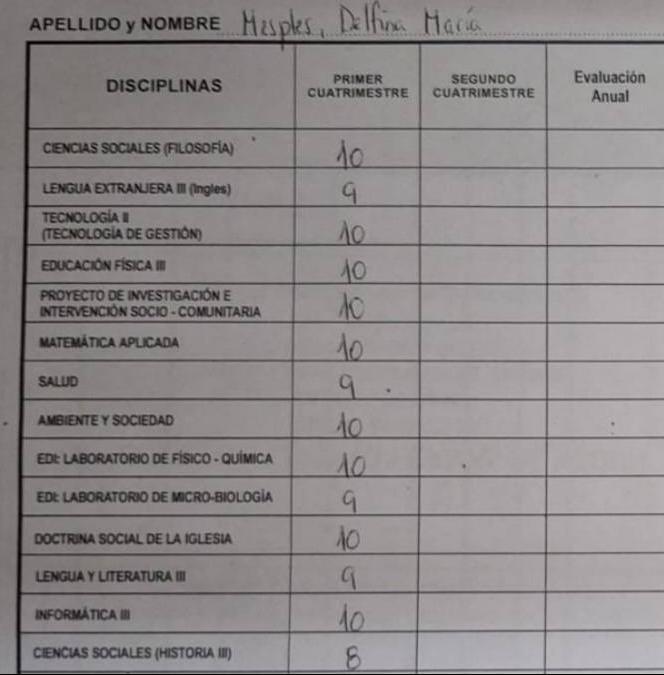 APELLIDO y NOMBRE Mesples, Delfina María
DISCIPLINAS
PRIMER CUATRIMESTRE
SEGUNDO CUATRIMESTRE
Evaluación Anual
CIENCIAS SOCIALES (FILOSOFÍA) 10
LENGUA EXTRANJERA III (Ingles) 9
TECNOLOGÍA II
(TECNOLOGÍA DE GESTIÓN) 10
EDUCACIÓN FÍSICA III 10
PROYECTO DE INVESTIGACIÓN E
INTERVENCIÓN SOCIO - COMUNITARIA 10
MATEMÁTICA APLICADA 10
SALUD 9
AMBIENTE Y SOCIEDAD 10
EDI: LABORATORIO DE FÍSICO - QUÍMICA 10
EDI: LABORATORIO DE MICRO-BIOLOGÍA 9
DOCTRINA SOCIAL DE LA IGLESIA 10
LENGUA Y LITERATURA III 9
INFORMÁTICA III 10
CIENCIAS SOCIALES (HISTORIA III) 8